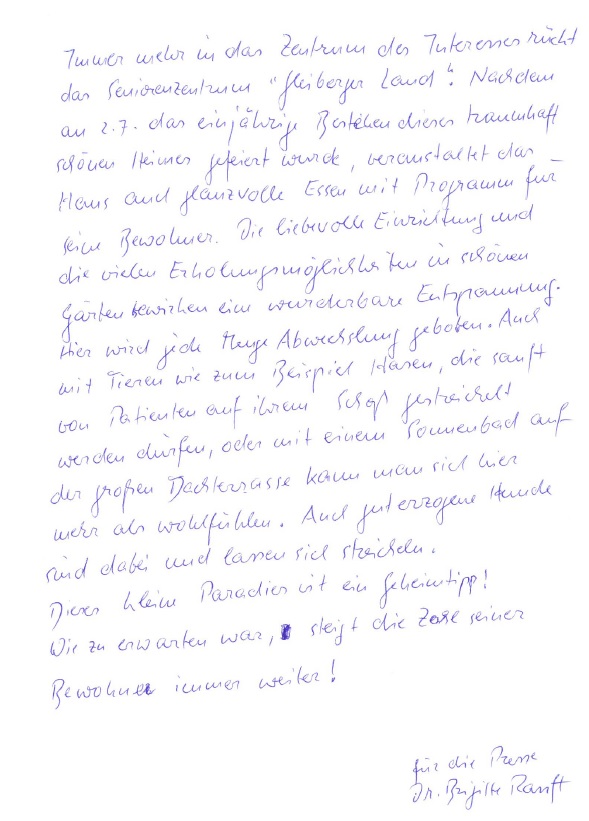 Immer mehr in das Zentrum des Interesses rückt
das Seniorenzentrum "Gleiberger Land". Nachdem
am 2.7. das einjährige Bestehen dieses traumhaft
schönen Heimes gefeiert wurde, veranstaltet das
Haus auch glanzvolle Essen mit Programm für
seine Bewohner. Die liebevolle Einrichtung und
die vielen Erholungsmöglichkeiten in schönen
Gärten bewirken eine wunderbare Entspannung.
Hier wird jede Menge Abwechslung geboten. Auch
mit Tieren wie zum Beispiel Hasen, die sanft
von Patienten auf ihrem Schoß gestreichelt
werden dürfen, oder mit einem Sonnenbad auf
der großen Dachterrasse kann man sich hier
mehr als wohlfühlen. Auch guterzogene Hunde
sind dabei und lassen sich streicheln.
Dieses kleine Paradies ist ein Geheimtipp!
Wie zu erwarten war, steigt die Zahl seiner
Bewohner immer weiter!
für die Presse
Dr. Brigitte Ranft